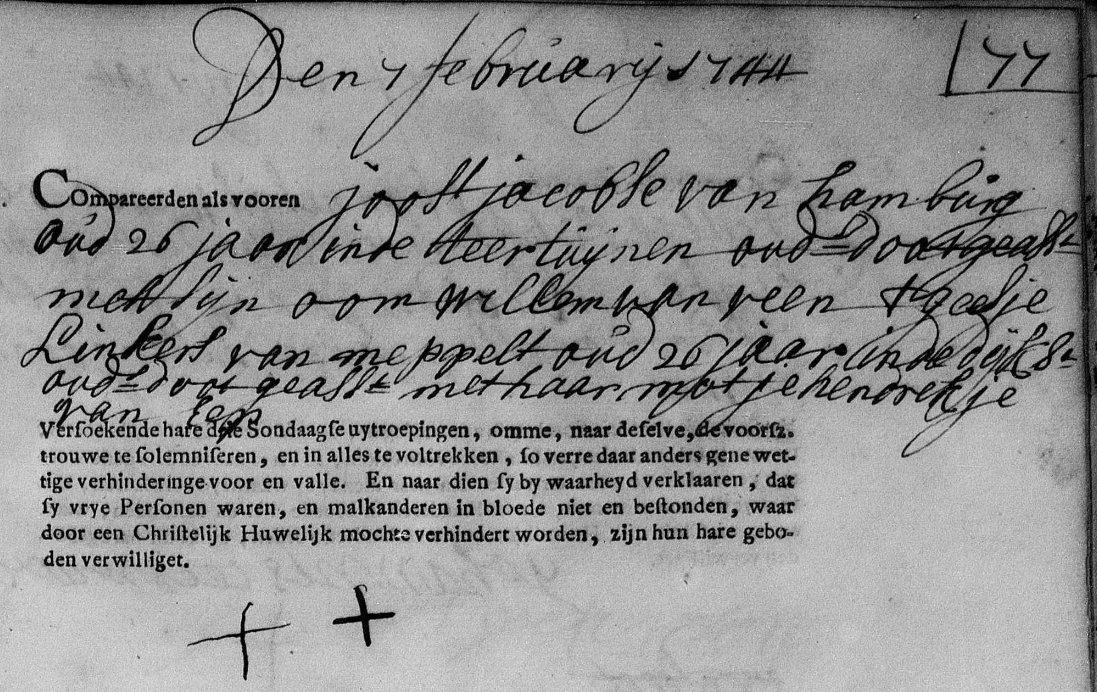 Den 7 februarij 1744
77
Compareerden als vooren joost jacobse van hamburg
oud 26 jaar inde teertuijnen oud:s doot geasst
met sijn oom willem van veen & geesje
Linkers van meppelt oud 26 jaar inde dijkst
oud:s doot geasst met haar mot je hendrekje
van Een
Versoekende hare drie Sondaagse uytroepingen, omme, naar deselve, de voorsz.
trouwe te solemniseren, en in alles te voltrekken, so verre daar anders gene wet-
tige verhinderinge voor en valle. En naar dien sy by waarheyd verklaaren, dat
sy vrye Personen waren, en malkanderen in bloede niet en bestonden, waar
door een Christelijk Huwelijk mochte verhindert worden, zijn hun hare gebo-
den verwilliget.